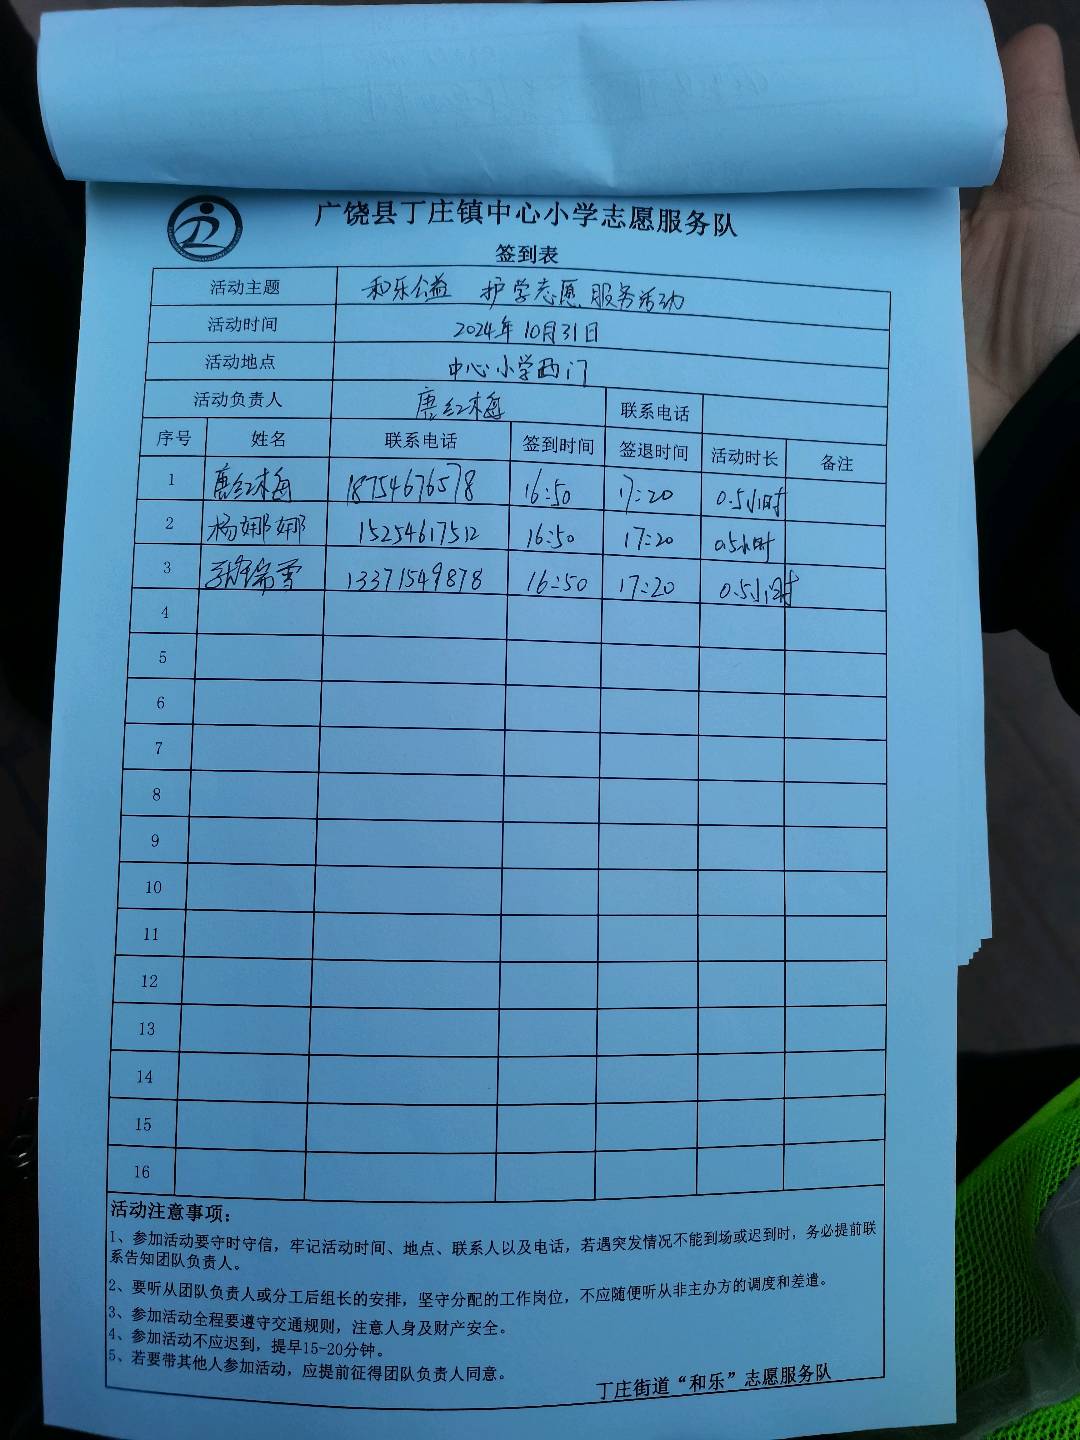 广饶县丁庄镇中心小学志愿服务队
签到表
活动主题 和乐公益 护学志愿服务活动
活动时间 2024年10月31日
活动地点 中心小学西门
活动负责人 唐红梅 联系电话
序号 姓名 联系电话 签到时间 签退时间 活动时长 备注
1 唐红梅 18754676578 16:50 17:20 0.5小时
2 杨娜娜 15254617512 16:50 17:20 0.5小时
3 瑞雪 13371549878 16:50 17:20 0.5小时
4
5
6
7
8
9
10
11
12
13
14
15
16
活动注意事项：
1、参加活动要守时守信，牢记活动时间、地点、联系人以及电话，若遇突发情况不能到场或迟到时，务必提前联
系告知团队负责人。
2、要听从团队负责人或分工后组长的安排，坚守分配的工作岗位，不应随便听从非主办方的调度和差遣。
3、参加活动全程要遵守交通规则，注意人身及财产安全。
4、参加活动不应迟到，提早15-20分钟。
5、若要带其他人参加活动，应提前征得团队负责人同意。
丁庄街道“和乐”志愿服务队